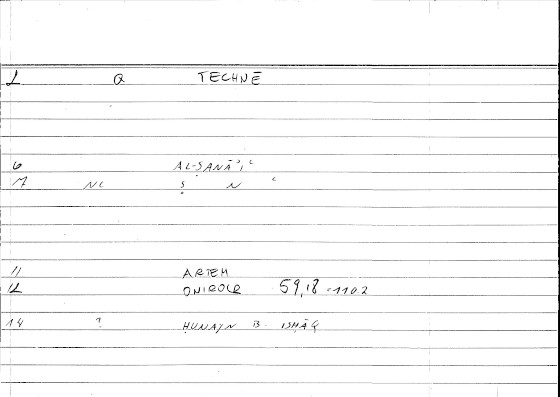 1 Q TECHNĒ
6 AL-ṢANĀʾIʿ
7 NC Ṣ N ʿ
11 ARTEM
12 ONIROCR 59,18 = 110.2
14 ? ḤUNAYN B. ISḤĀQ